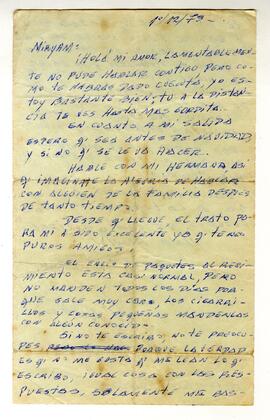 1º/12/73 -
MIRYAM:
¡HOLA MI AMOR, LAMENTABLEMEN-
TE NO PUDE HABLAR CONTIGO PERO CO-
MO TE HABRAS DADO CUENTA, YO ES-
TOY BASTANTE BIEN, TU A LA DISTAN-
CIA TE VES HASTA MAS GORDITA.
EN CUANTO A MI SALIDA
ESPERO Q' SEA ANTES DE NAVIDAD,
Y SI NO Q' SE LE VA HACER..
HABLE CON MI HERMANA ASI
Q' IMAGINATE LA ALEGRIA DE HABLAR
CON ALGUIEN DE LA FAMILIA DESPUES
DE TANTO TIEMPO.
DESDE Q' LLEGUE EL TRATO PA
RA MI A SIDO EXCELENTE YA Q' TENGO
PUROS AMIGOS.
EL ENVIO DE PAQUETES DE
ESTA CASI NORMAL, PERO
NO MANDEN TODOS LOS DIAS POR
QUE SALE MUY CARO, LOS CIGARRI-
LLOS Y COSAS PEQUEÑAS MANDENLAS
CON ALGUN CONOCIDO.
SI NO TE ESCRIBO, NO TE PREOCU-
PES PORQUE LA VERDAD
ES Q' NO ME GUSTA Q' ME LEAN LO Q'
ESCRIBO, IGUAL COSA CON LAS RES-
PUESTAS, SOLAMENTE ME BAS-